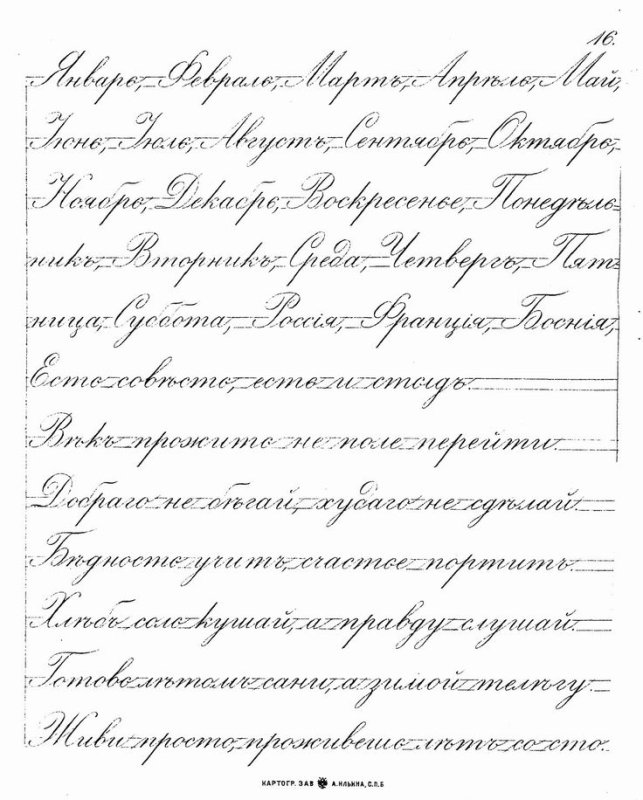 16.
Январь, Февраль, Мартъ, Апрѣль, Май,
Іюнь, Іюль, Августъ, Сентябрь, Октябрь,
Ноябрь, Декабрь, Воскресенье, Понедѣль-
никъ, Вторникъ, Среда, Четвергъ, Пят-
ница, Суббота, Россія, Франція, Боснія,
Есть совѣсть, есть и стыдъ.
Вѣкъ прожить не поле перейти.
Добраго не бѣгай, худаго не сдѣлай.
Бѣдность учитъ, счастье портитъ.
Хлѣбъ соль кушай, а правду слушай.
Готовь лѣтомъ сани, а зимой телѣгу.
Живи просто, проживешь лѣтъ со сто.
КАРТОГР. ЗАВ А. ИЛЬИНА, С.П.Б